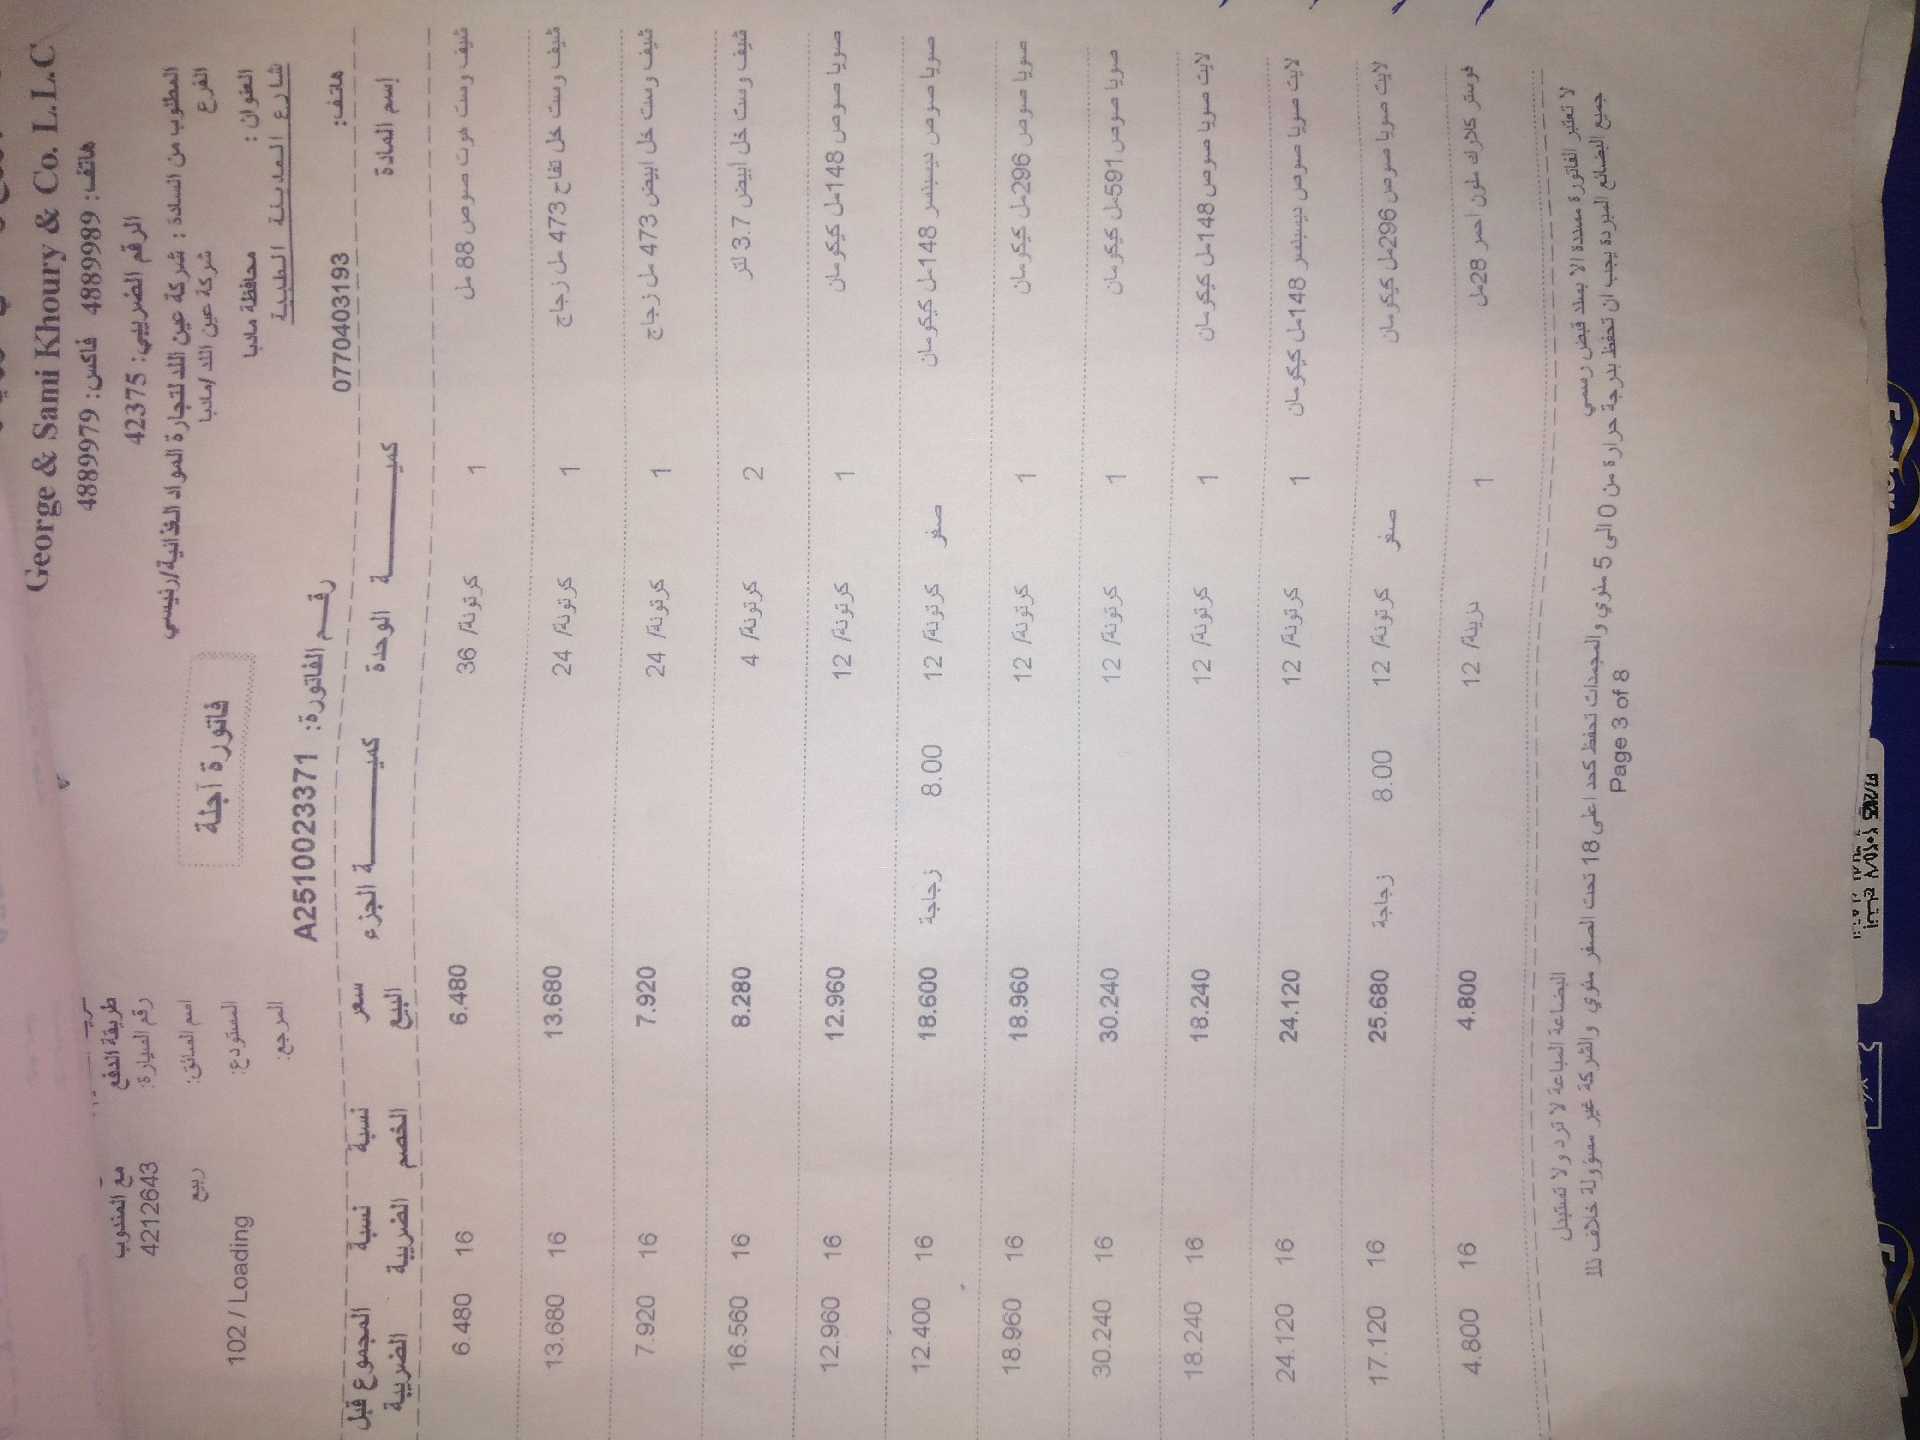 George & Sami Khoury & Co. L.L.C
هاتف: 4889989 فاكس: 4889979
الرقم الضريبي: 42375
المطلوب من السادة : شركة عين اللد لتجارة المواد الغذائية/رئيسي
الفرع شركة عين اللد /مادبا
العنوان : محافظة مادبا
شارع المدينة الطبية
هاتف: 0770403193
فاتورة آجلة
رقم الفاتورة: A2510023371
طريقة الدفع مع المندوب
رقم السيارة: 4212643
اسم السائق: ربيع
المستودع: 102 / Loading
المرجع:
إسم المادة كميـــــة الوحدة كميـــــة الجزء سعر البيع نسبة الخصم نسبة الضريبة المجموع قبل الضريبة
شيف وست هوت صوص 88 مل 1 كرتونة/ 36 6.480 16 6.480
شيف وست خل تفاح 473 مل زجاج 1 كرتونة/ 24 13.680 16 13.680
شيف وست خل ابيض 473 مل زجاج 1 كرتونة/ 24 7.920 16 7.920
شيف وست خل أبيض 3.7 لتر 2 كرتونة/ 4 8.280 16 16.560
صويا صوص 148مل كيكومان 1 كرتونة/ 12 12.960 16 12.960
صويا صوص ديسبنسر 148مل كيكومان صفر كرتونة/ 12 8.00 زجاجة 18.600 16 12.400
صويا صوص 296مل كيكومان 1 كرتونة/ 12 18.960 16 18.960
صويا صوص 591مل كيكومان 1 كرتونة/ 12 30.240 16 30.240
لايت صويا صوص 148مل كيكومان 1 كرتونة/ 12 18.240 16 18.240
لايت صويا صوص ديسبنسر 148مل كيكومان 1 كرتونة/ 12 24.120 16 24.120
لايت صويا صوص 296مل كيكومان صفر كرتونة/ 12 8.00 زجاجة 25.680 16 17.120
فوستر كلارك ملون احمر 28مل 1 دزينة/ 12 4.800 16 4.800
لا تعتبر الفاتورة مسددة الا بسند قبض رسمي البضاعة المباعة لا ترد ولا تستبدل
جميع البضائع المبردة يجب ان تحفظ بدرجة حرارة من 0 الى 5 مئوي والمجمدات تحفظ كحد اعلى 18 تحت الصفر مئوي والشركة غير مسؤولة خلاف ذلك
Page 3 of 8